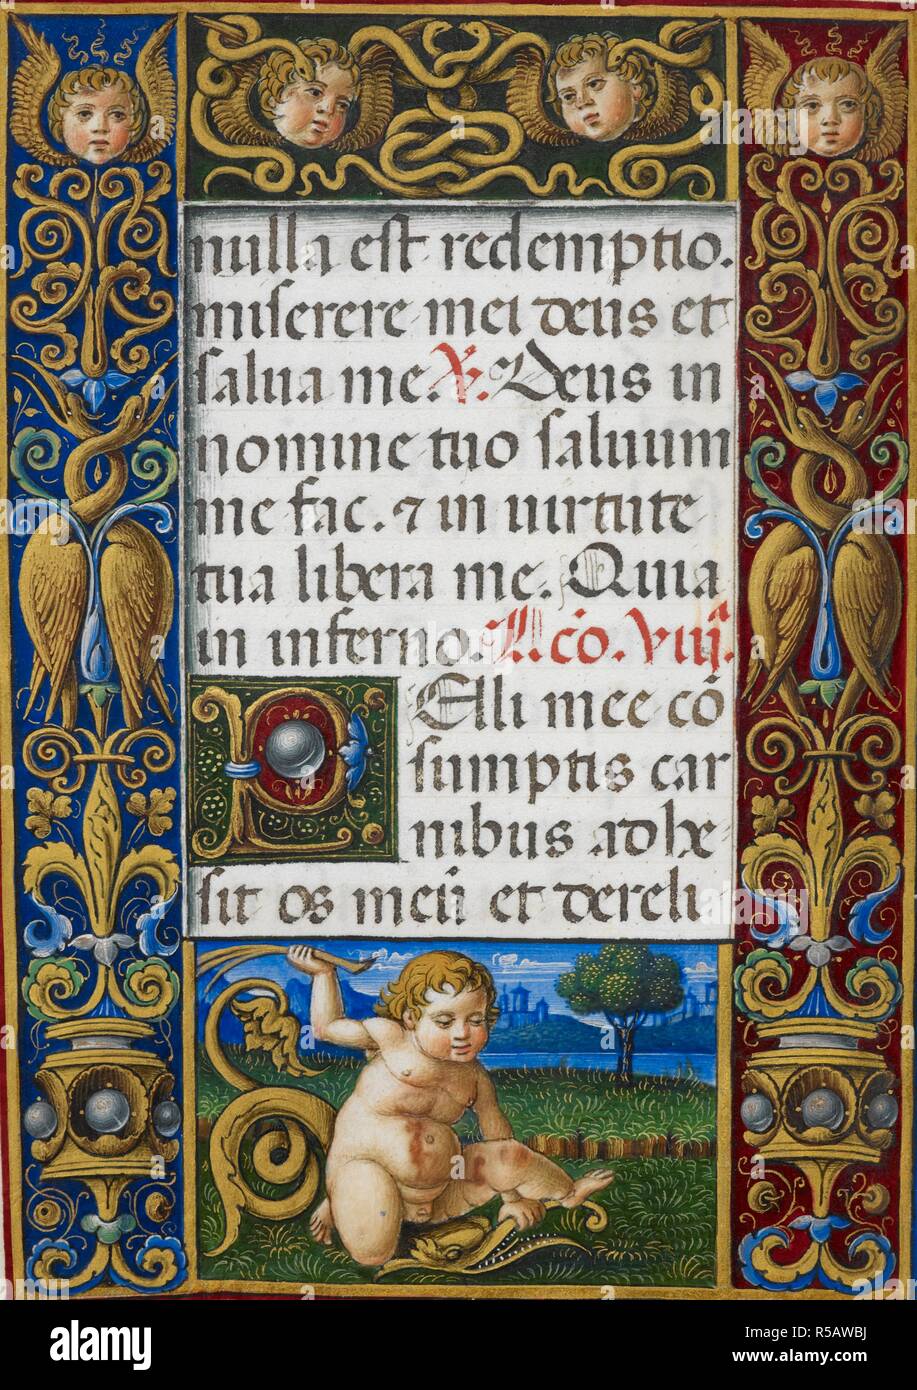 nulla est redemptio.
miserere mei deus et
salua me. V. Deus in
nomine tuo saluum
me fac. ⁊ in uirtute
tua libera me. Quia
in inferno. Lc̄o. viij.
PElli mee cō
sumptis car
nibus adhe
sit os meū et dereli
alamy
Image ID: R5AWBJ
www.alamy.com